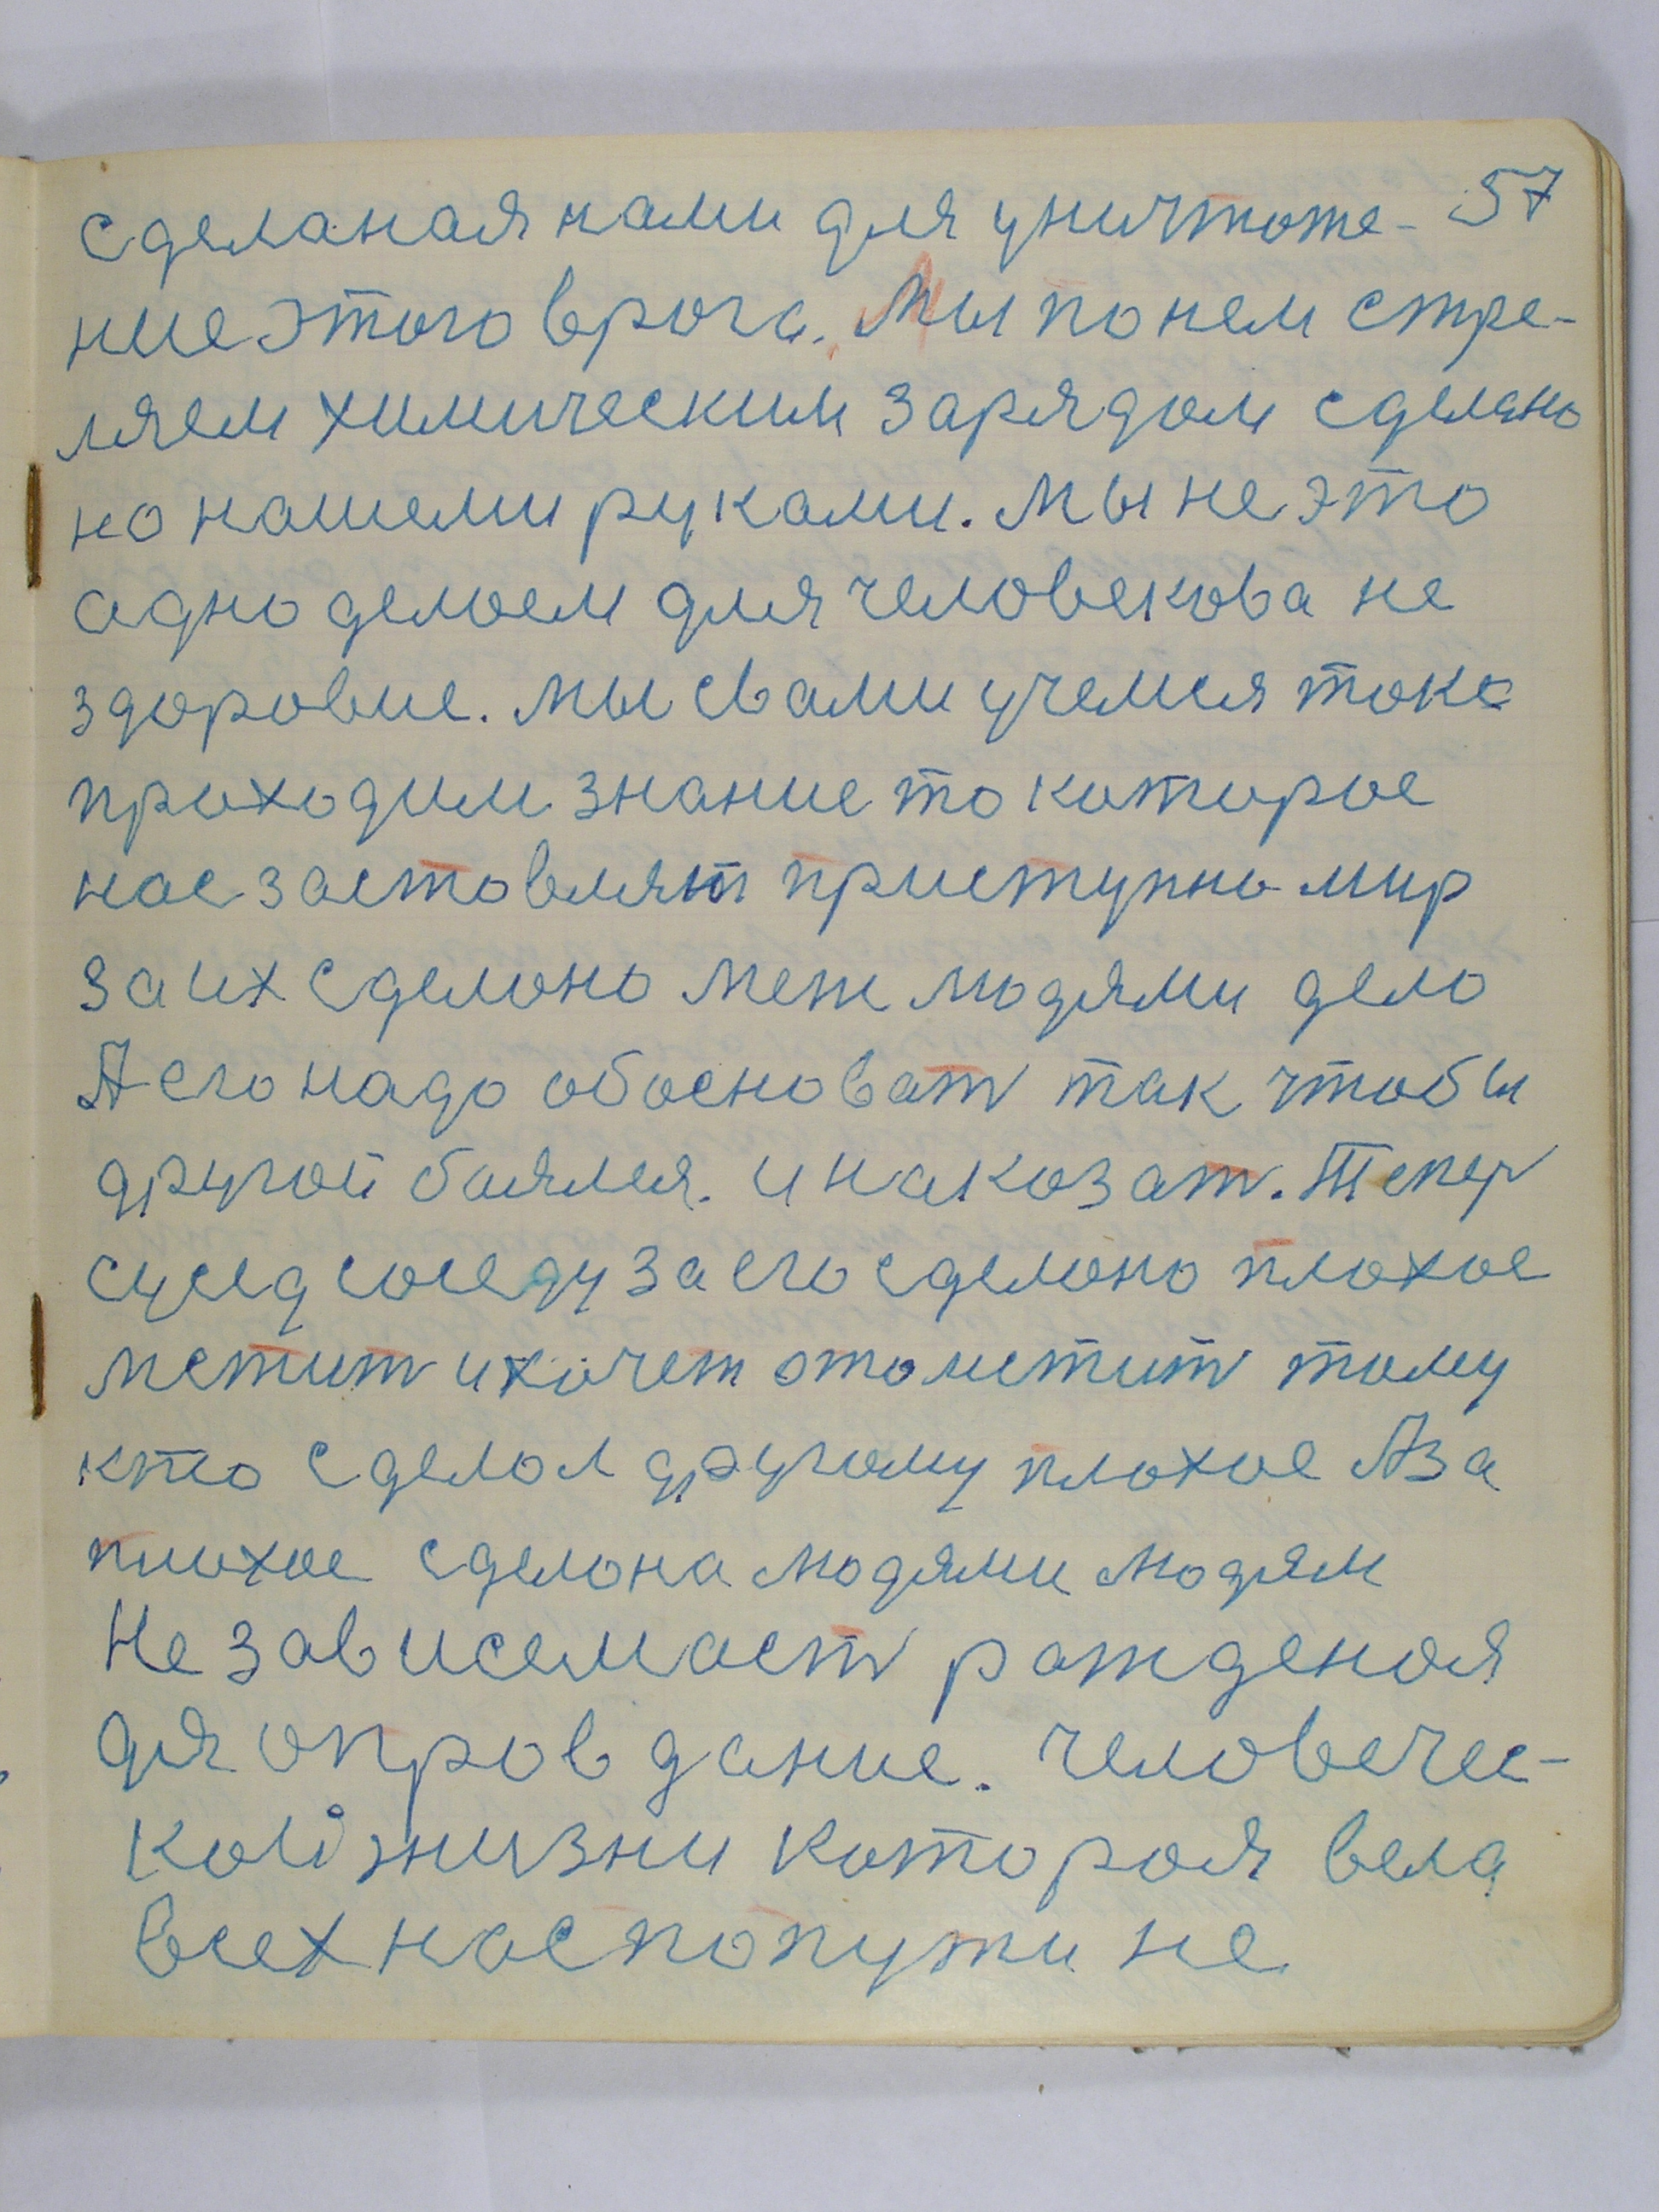 сделаная нами для уничтоже- 57
ние этого врога. Мы по нем стре-
ляем химическим зарядом сделано
но нашеми руками. Мы не это
одно делоем для человекова не
здоровие. Мы свами учемся токо
проходим знание то которое
нас застовляют приступно мир
за их сделоно меж людями дело
А его надо обосноват так чтобы
другой боялся. и накозат. Тепер
сусед соседу за его сделоно плохое
мстит и хочет отомстит тому
кто сделол другому плохое А за
плохое сделона людями людям
Не зависемаст рожденоя
для опровдание. человечес-
кой жизни которая вела
всех нас по пути не